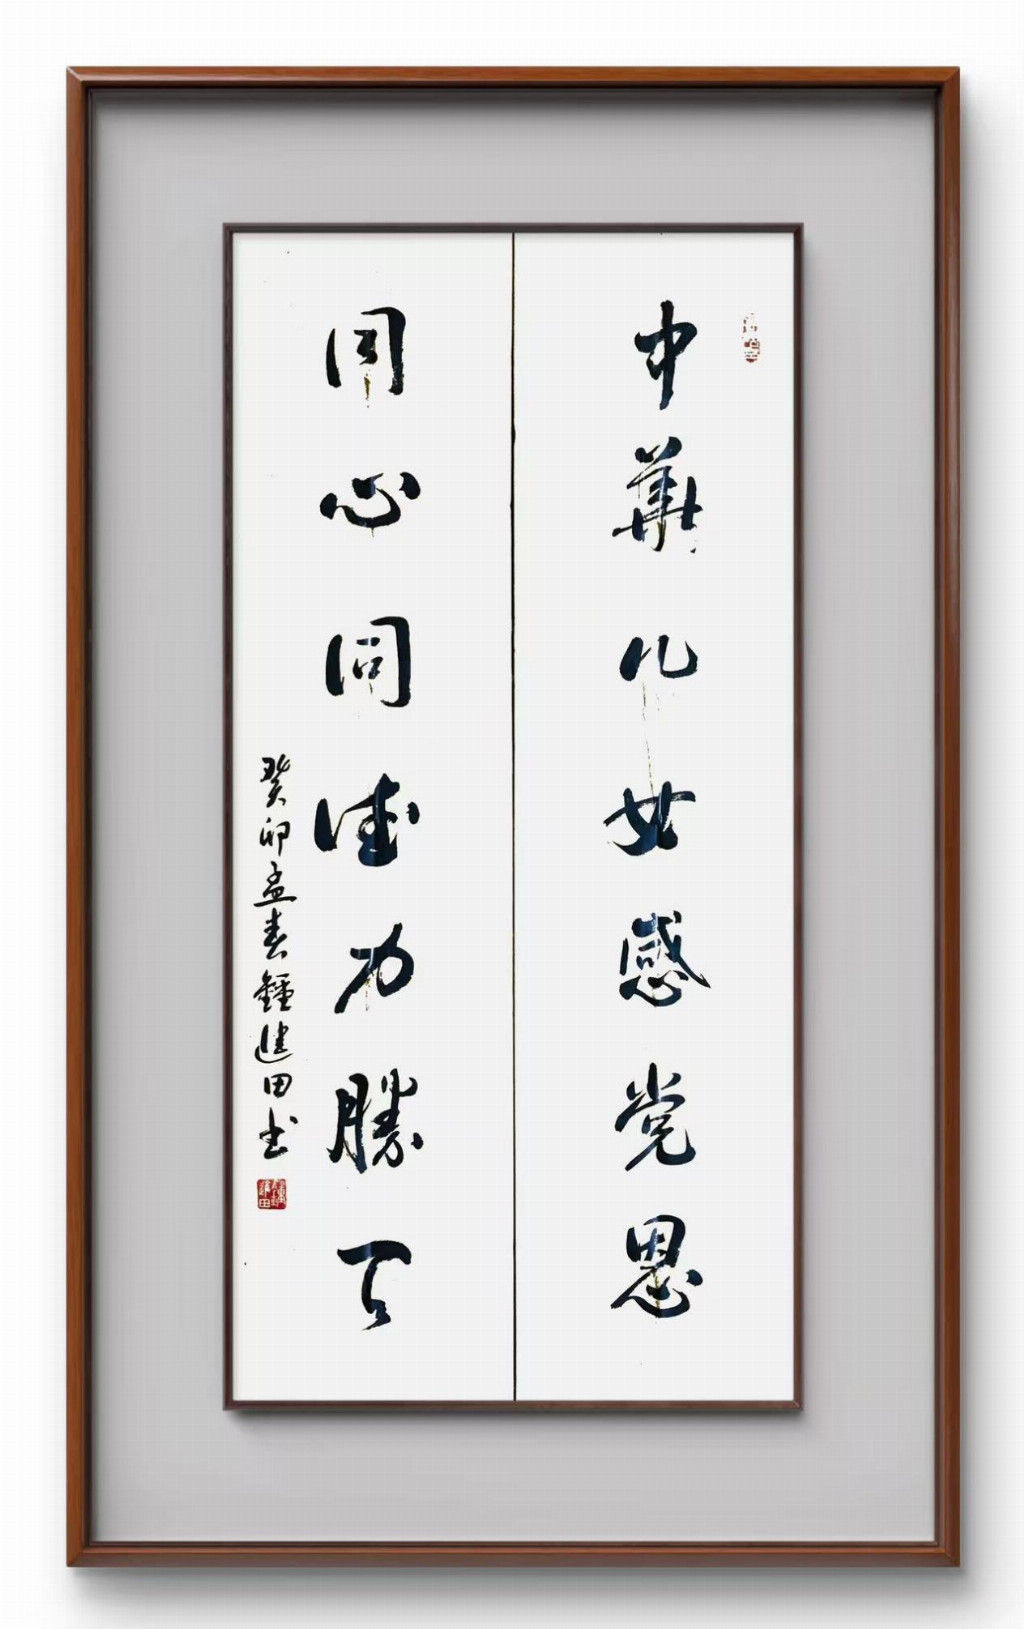 中華儿女感党恩
同心同德力勝
癸卯孟春鍾進田书